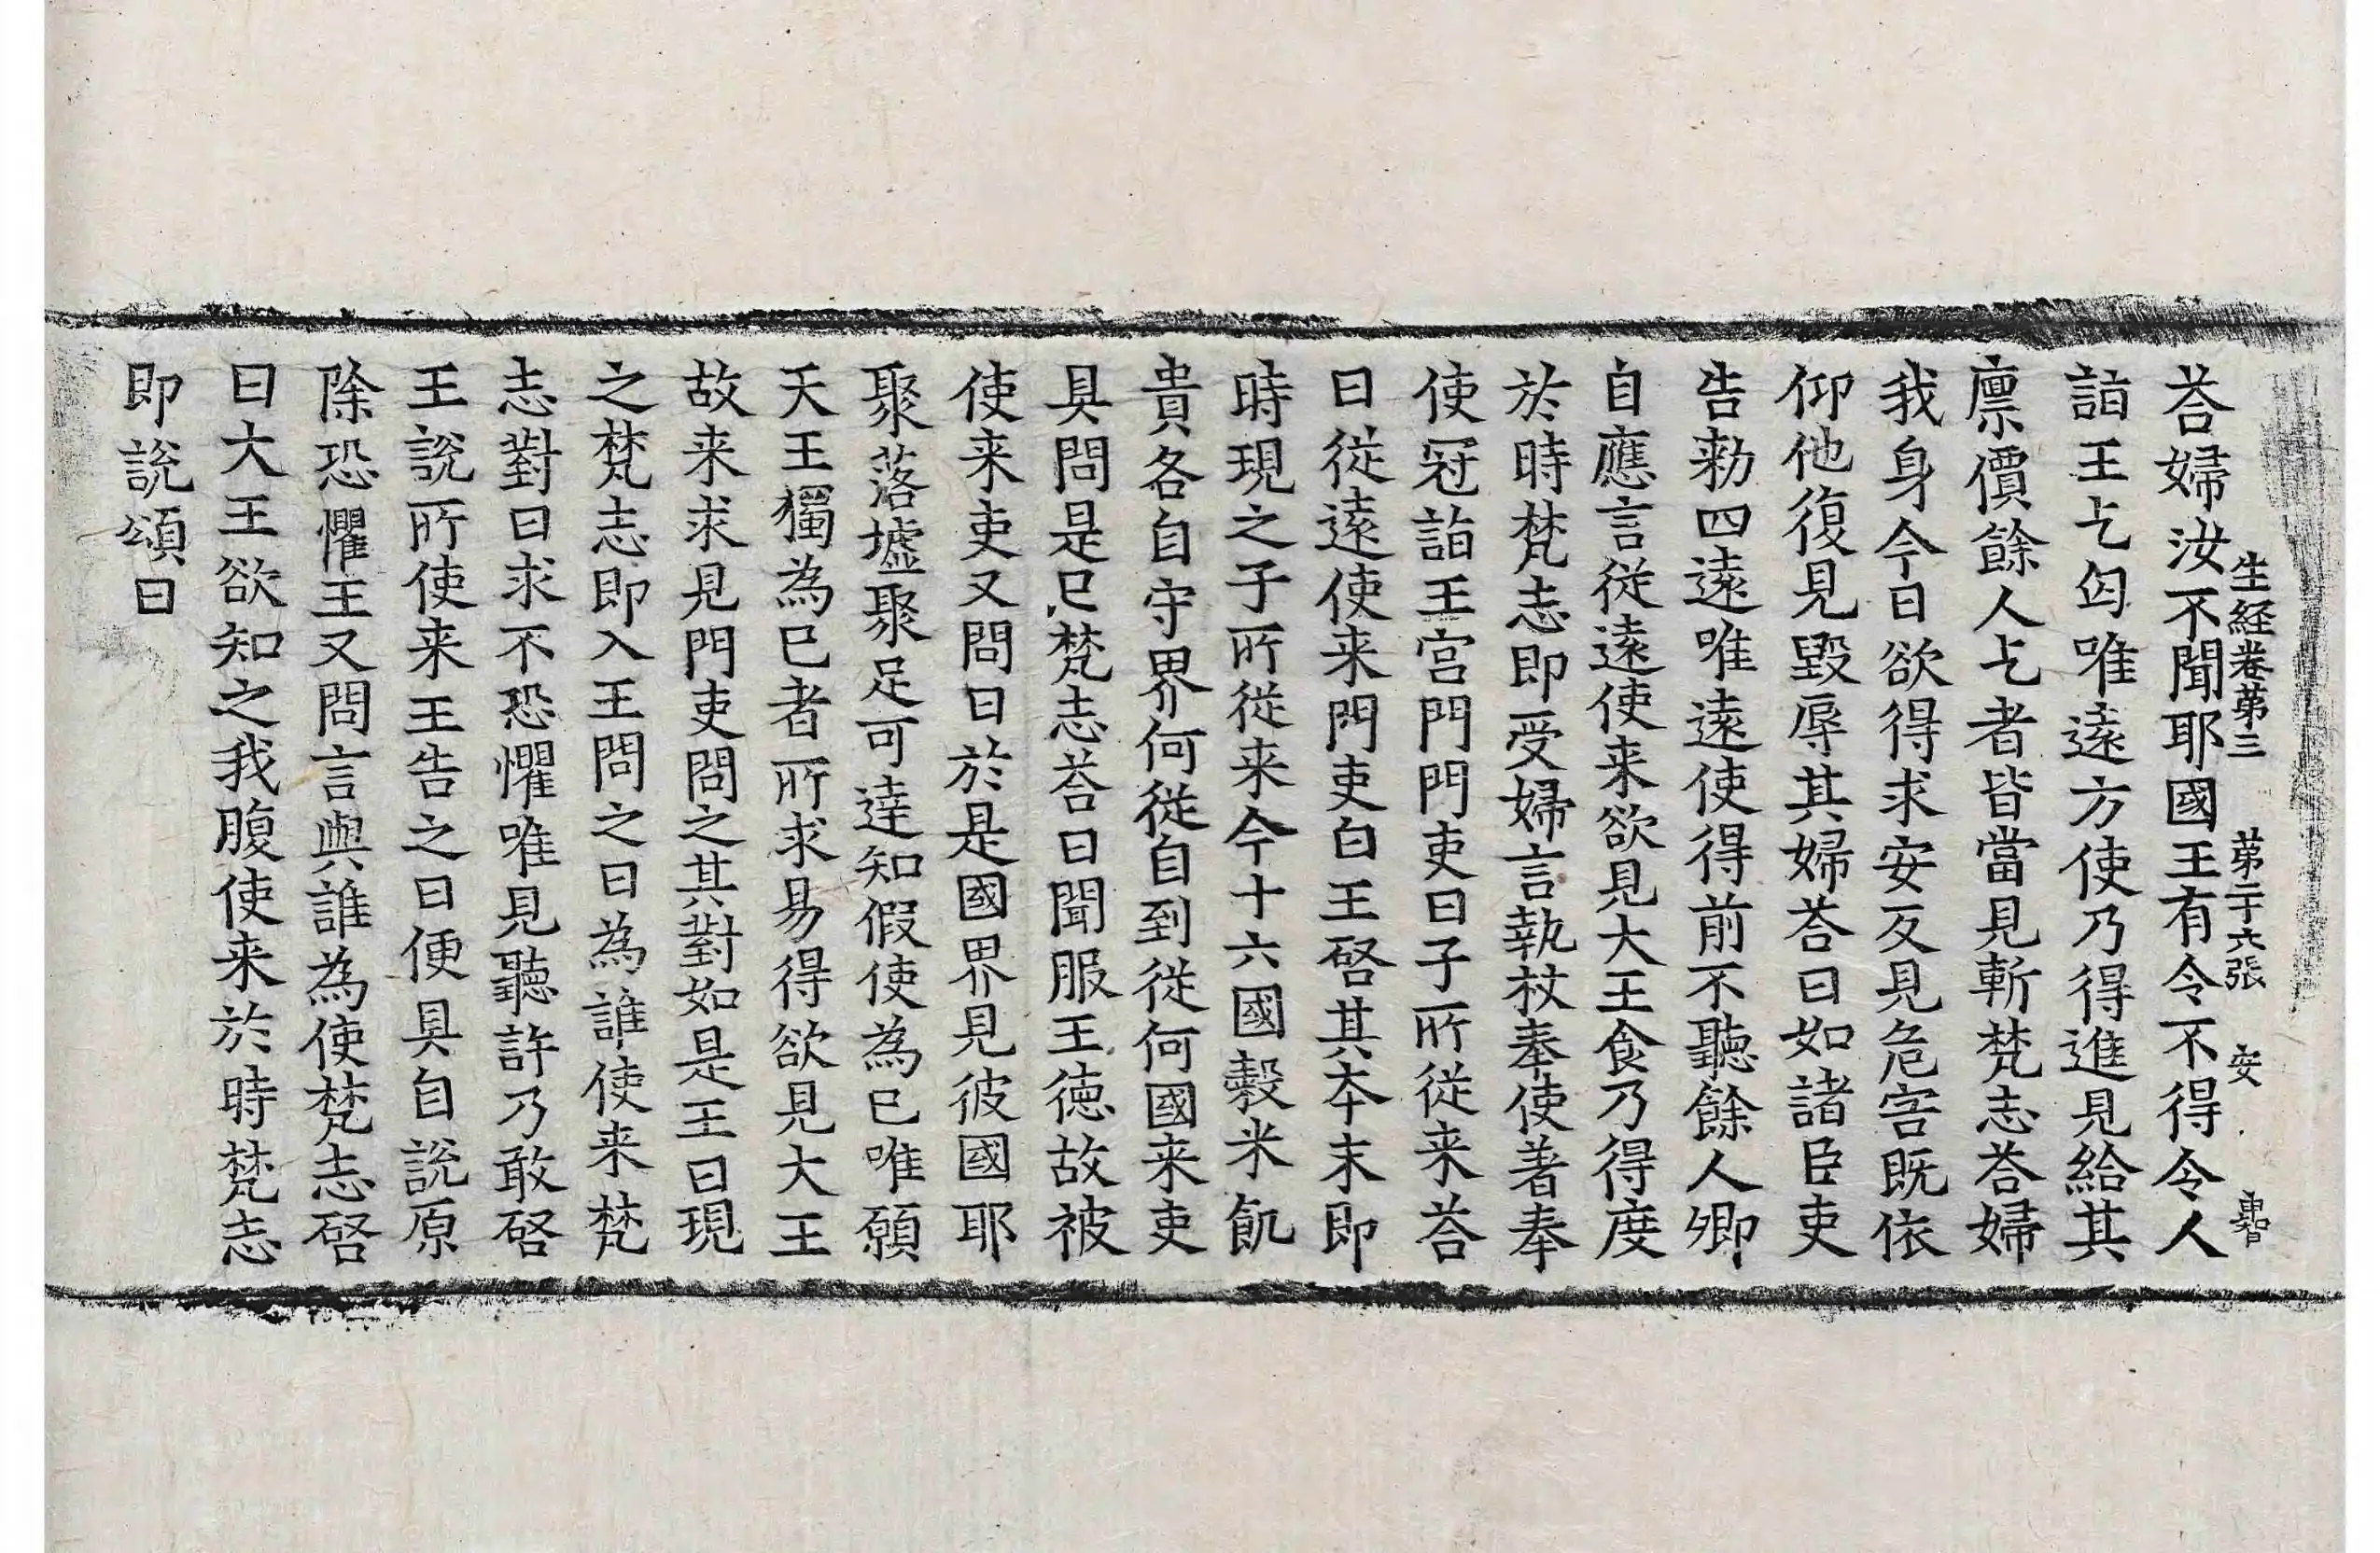 生経卷第三　第二十六張　安　惠智
荅婦汝不聞耶國王有令不得令人
詣王乞匃唯遠方使乃得進見給其
廪價餘人乞者皆當見斬梵志荅婦
我身今日欲得求安反見危害既依
仰他復見毀辱其婦荅曰如諸臣吏
告勑四遠唯遠使得前不聽餘人卿
自應言從遠使来欲見大王食乃得度
於時梵志即受婦言執杖奉使著奉
使冠詣王宫門門吏曰子所從来荅
曰從遠使来門吏白王啓其夲末即
時現之子所從来今十六國糓米飢
貴各自守界何從自到從何國来吏
具問是已梵志荅曰聞服王德故被
使来吏又問曰於是國界見彼國耶
聚落墟聚足可逹知假使為已唯願
天王獨為已者所求易得欲見大王
故来求見門吏問之其對如是王曰現
之梵志即入王問之曰為誰使来梵
志對曰求不恐懼唯見聽許乃敢啓
王說所使来王告之曰便具自說原
除恐懼王又問言與誰為使梵志啓
曰大王欲知之我腹使来於時梵志
即說頌曰